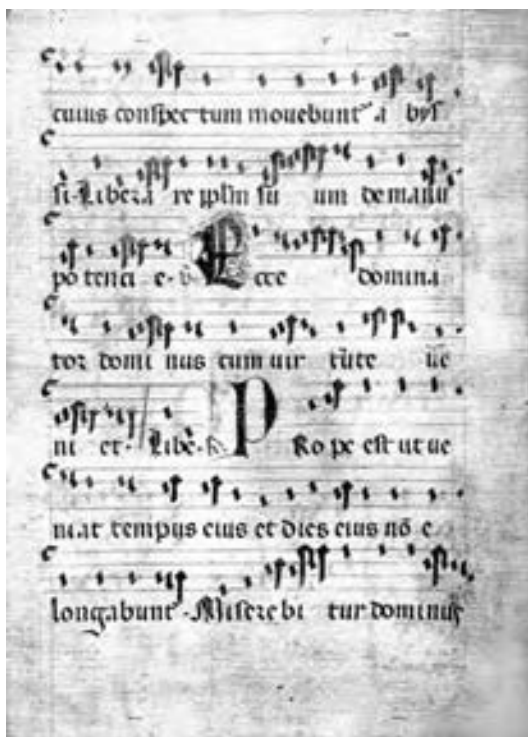 cuius conspec tum mouebunt̄ a bys
si. Libera re ipsm su um de manu
po tenci e. v̄ Ecce domina
tor domi nus cum uir tūte ūe
ni et. Libe. R̄ Pro pe est ut ue
niat tempus eius et dies eius nō e
longabunt̄. Misere bi tur dominus